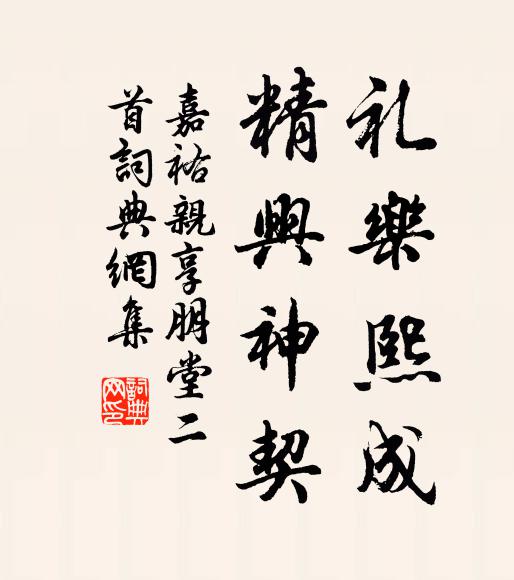 礼樂熙成
精興神契
嘉祐親享明堂二
首詞典網集
詞典
网印